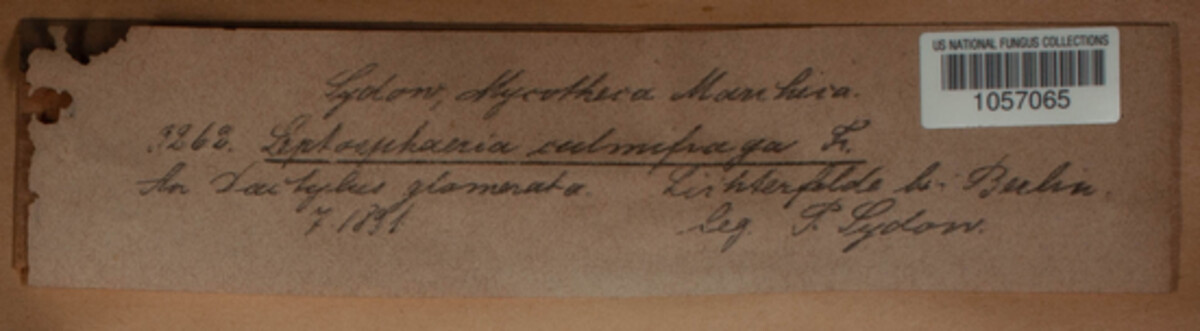 US NATIONAL FUNGUS COLLECTIONS
1057065
Sydow, Mycotheca Marchica.
3262. Leptosphaeria culmifraga Fr.
An Dactylus glomerata. Lichterfelde b. Berlin.
7. 1891. leg. P. Sydow.